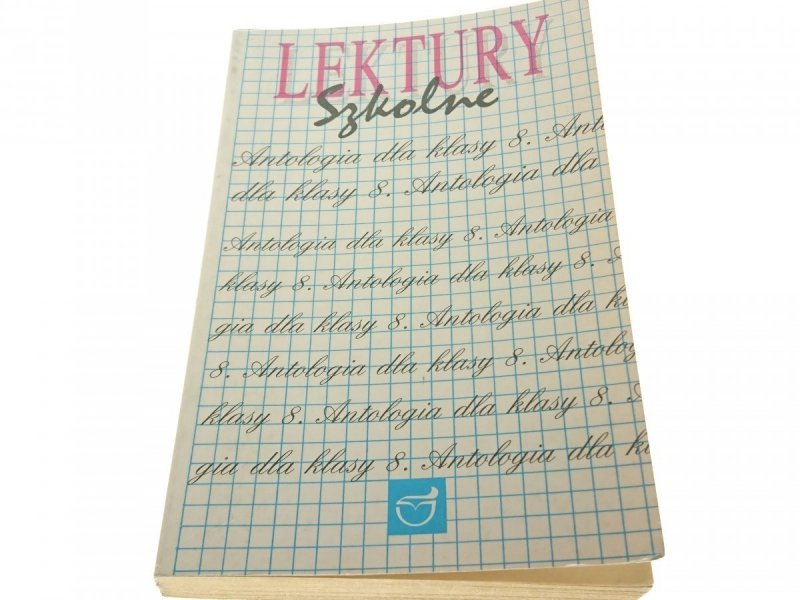 LEKTURY
Szkolne
Antologia dla klasy 8. Ant
dla klasy 8. Antologia dla
Antologia dla klasy 8. Antologia
klasy 8. Antologia dla klasy 8.
gia dla klasy 8. Antologia dla kl
8. Antologia dla klasy 8. Antolog
klasy 8. Antologia dla klasy 8.
gia dla klasy 8. Antologia dla kl